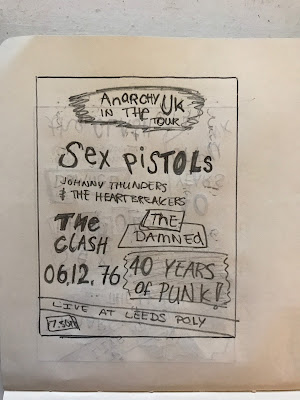 ANARCHY UK
IN THE TOUR
SEX PISTOLS
JOHNNY THUNDERS
& THE HEARTBREAKERS
THE
CLASH
THE
DAMNED
06.12.76
40 YEARS
OF PUNK!
LIVE AT LEEDS POLY